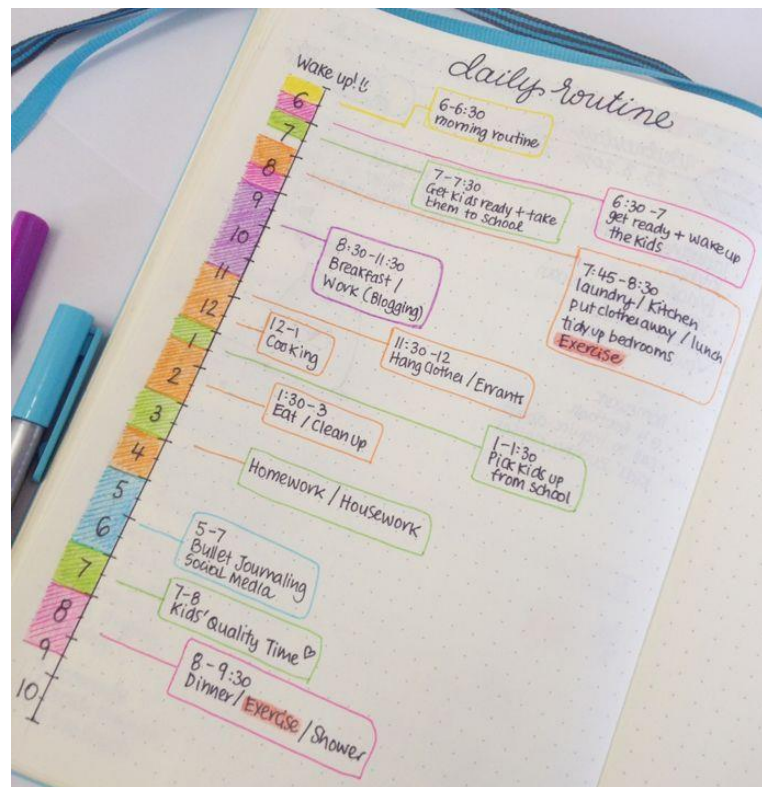 daily routine
Wake up!!
6
7
8
9
10
11
12
1
2
3
4
5
6
7
8
9
10
6-6:30
morning routine
6:30-7
get ready + wake up
the kids
7-7:30
Get kids ready + take
them to school
7:45-8:30
laundry / Kitchen
put clothes away / lunch
tidy up bedrooms
Exercise
8:30-11:30
Breakfast /
Work (Blogging)
11:30-12
Hang Clothes / Errants
12-1
Cooking
1-1:30
Pick kids up
from school
1:30-3
Eat / Clean up
Homework / Housework
5-7
Bullet Journaling
Social Media
7-8
Kids' Quality Time ♡
8-9:30
Dinner / Exercise / Shower